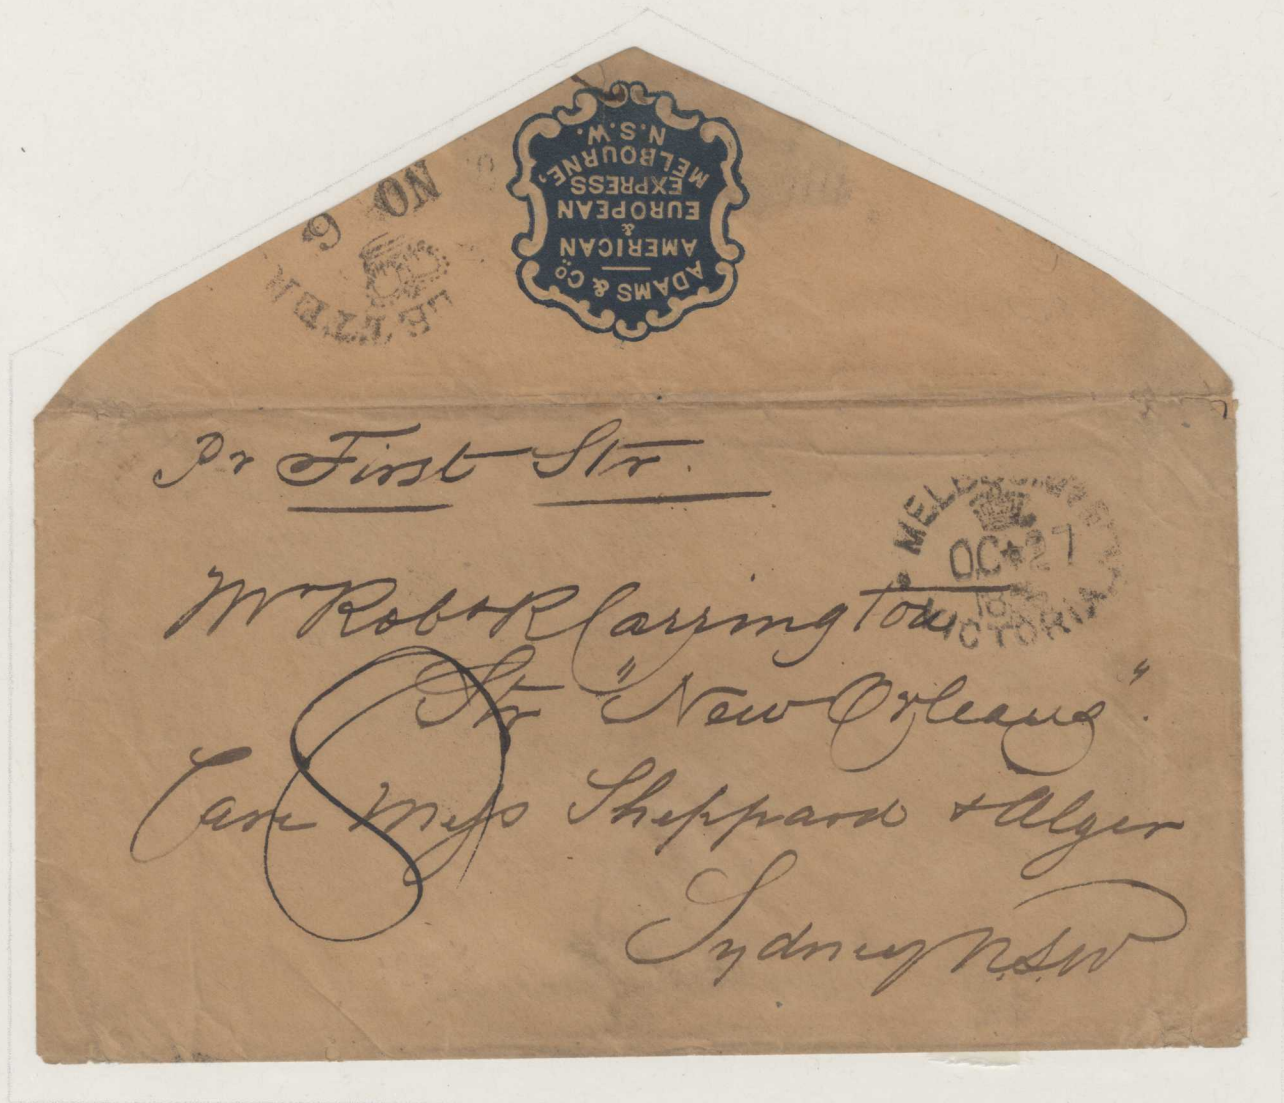 ADAMS & Co.
AMERICAN
&
EUROPEAN
EXPRESS
MELBOURNE,
N.S.W.
NO 6
Pr First Str.
MELBOURNE
OC 27
VICTORIA
Mr Robt R Carrington
Str "New Orleans".
8
Care Mess Sheppard & Alger
Sydney N.S.W